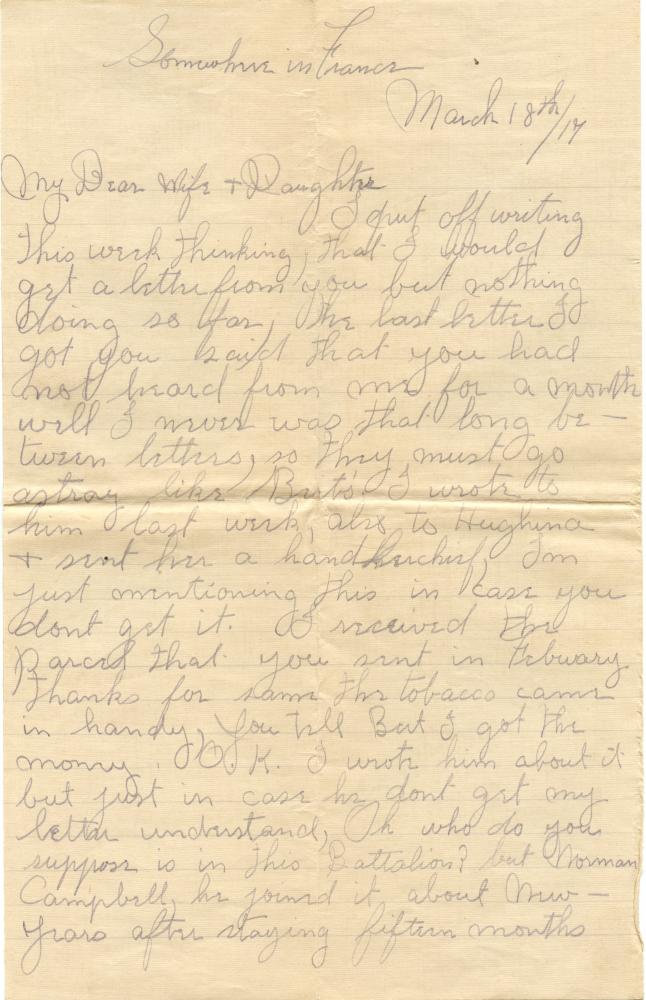 Somewhere in France
March 18th/17
My Dear Wife + Daughter
I put off writing
this week thinking, that I would
get a letter from you but nothing
doing so far, the last letter I
got you said that you had
not heard from me for a month
well I never was that long be-
tween letters, so they must go
astray like Bert's I wrote to
him last week, also to Hughina
+ sent her a handkerchief, I'm
just mentioning this in case you
dont get it. I received the
Parcel that you sent in Febuary
thanks for same the tobacco came
in handy, You tell Bert I got the
money. O.K. I wrote him about it
but just in case he dont get my
letter understand, Oh who do you
suppose is in this Battalion? but Norman
Campbell, he joined it about New-
Years after staying fifteen months